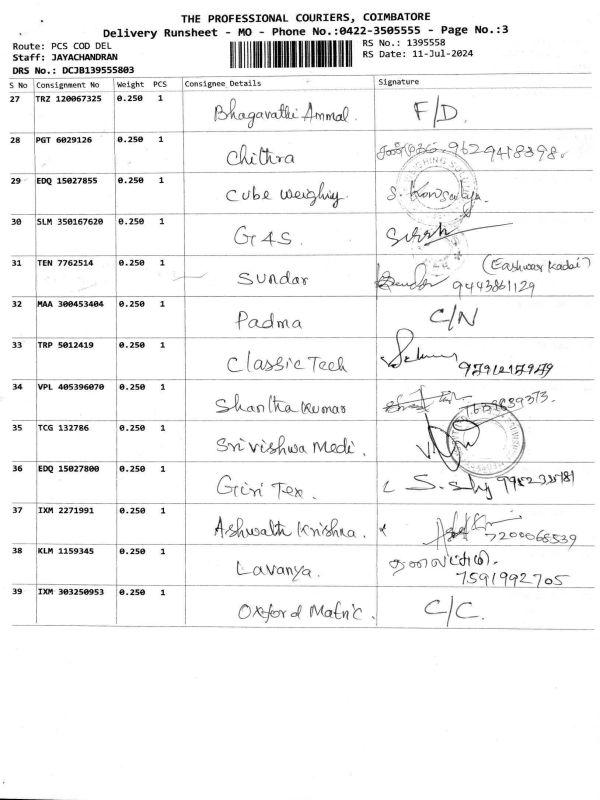 THE PROFESSIONAL COURIERS, COIMBATORE
Delivery Runsheet - MO - Phone No.:0422-3505555 - Page No.:3
Route: PCS COD DEL
RS No.: 1395558
Staff: JAYACHANDRAN
RS Date: 11-Jul-2024
DRS No.: DCJB139555803
S No Consignment No Weight PCS Consignee Details Signature
27 TRZ 120067325 0.250 1 Bhagavathi Ammal. F/D.
28 PGT 6029126 0.250 1 Chithra 9629418398.
29 EDQ 15027855 0.250 1 Cube Weighing S.
30 SLM 350167620 0.250 1 G4S
31 TEN 7762514 0.250 1 Sundar (Eashwar Kadai) 9443861129
32 MAA 300453404 0.250 1 Padma C/N
33 TRP 5012419 0.250 1 Classic Tech
34 VPL 405396070 0.250 1 Shantha Kumar
35 TCG 132786 0.250 1 Sri Vishwa Medi.
36 EDQ 15027800 0.250 1 Giri Tex.
37 IXM 2271991 0.250 1 Ashwath Krishna. 7200068539
38 KLM 1159345 0.250 1 Lavanya. 7591992705
39 IXM 303250953 0.250 1 Oxford Matric. C/C.